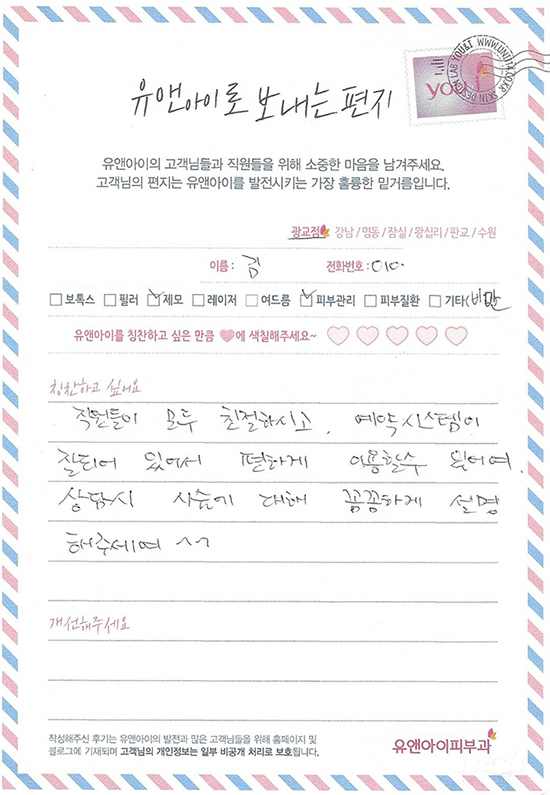 SKIN DESIGN LAB YOU&I WWW.UNI114.CO.KR
you
유앤아이로 보내는 편지
유앤아이의 고객님들과 직원들을 위해 소중한 마음을 남겨주세요.
고객님의 편지는 유앤아이를 발전시키는 가장 훌륭한 밑거름입니다.
광교점 강남 / 명동 / 잠실 / 왕십리 / 판교 / 수원
이름 : 김 전화번호 : 010-
보톡스 필러 제모 레이저 여드름 피부관리 피부질환 기타(비만
유앤아이를 칭찬하고 싶은 만큼 에 색칠해주세요~
칭찬하고 싶어요
직원들이 모두 친절하시고, 예약시스템이
잘되어 있어서 편하게 이용할수 있어여.
상담시 시술에 대해 꼼꼼하게 설명
해주세여 ^^
개선해주세요
작성해주신 후기는 유앤아이의 발전과 많은 고객님들을 위해 홈페이지 및
블로그에 기재되며 고객님의 개인정보는 일부 비공개 처리로 보호됩니다.
유앤아이피부과